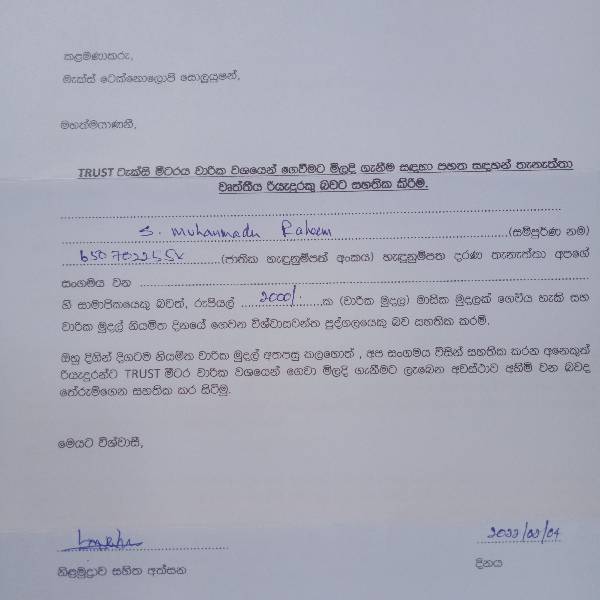 කළමණාකරු,
මැක්ස් ටෙක්නොලොජි සොලූයුෂන්,
මහත්මයාණනි,
TRUST ටැක්සි මීටරය වාරික වශයෙන් ගෙවීමට මිලදි ගැනීම සඳහා පහත සඳහන් තැනැත්තා
වෘත්තීය රියැදුරකු බවට සහතික කිරීම.
S. Muhammadu Raheem (සම්පූර්ණ නම)
650702255V (ජාතික හැඳුනුම්පත් අංකය) හැඳුනුම්පත දරණ තැනැත්තා අපගේ
සංගමය වන
හි සාමාජිකයෙකු බවත්, රුපියල් 2000/- ක (වාරික මුදල) මාසික මුදලක් ගෙවිය හැකි සහ
වාරික මුදල් නියමිත දිනයේ ගෙවන විශ්වාසවන්ත පුද්ගලයෙකු බව සහතික කරමි.
ඔහු දිගින් දිගටම නියමිත වාරික මුදල් අතපසු කලහොත් , අප සංගමය විසින් සහතික කරන අනෙකුත්
රියැදුරන්ට TRUST මීටර වාරික වශයෙන් ගෙවා මිලදි ගැනීමට ලැබෙන අවස්ථාව අහිමි වන බවද
තේරුම්ගෙන සහතික කර සිටිමු.
මෙයට විශ්වාසී,
2022/02/04
නිළමුද්‍රාව සහිත අත්සන
දිනය